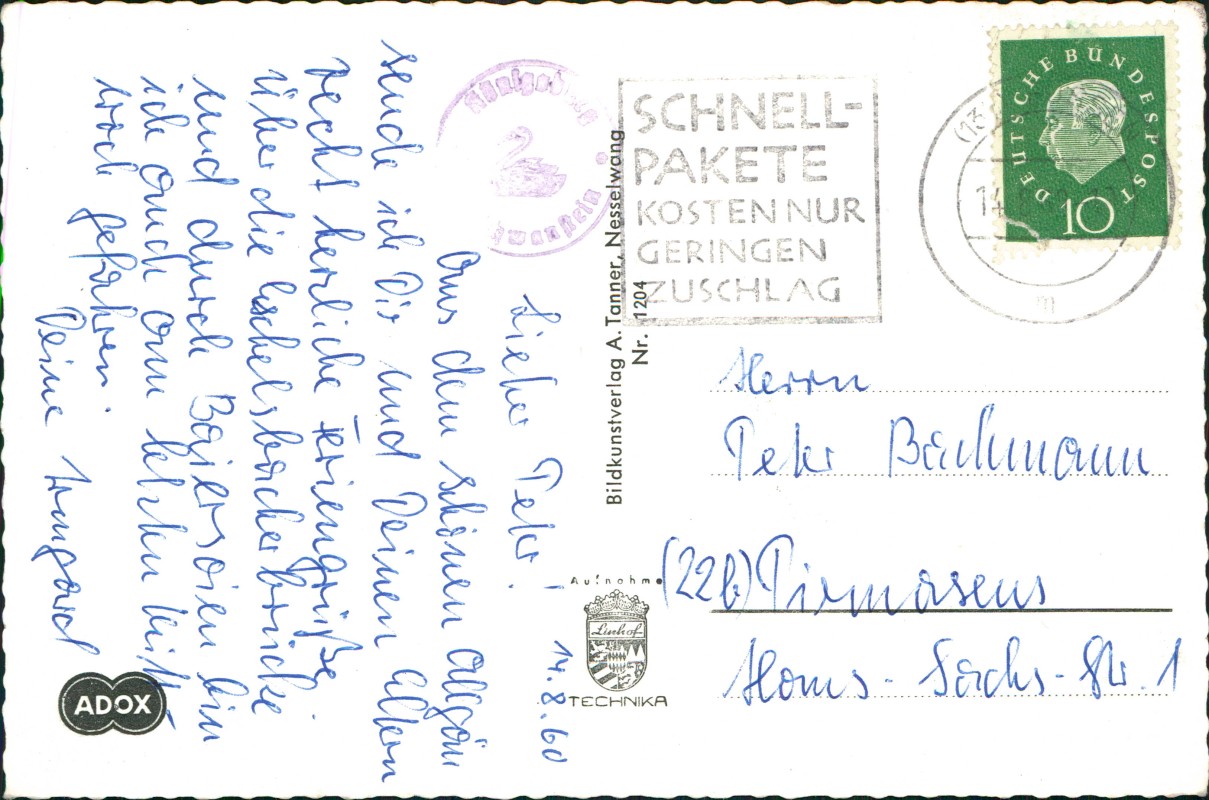 Lieber Peter! 14.8.60
Aus dem schönen Allgäu
sende ich Dir und Deinen Eltern
recht herzliche Feriengrüße.
Über die Echelsbacherbrücke
und durch Baiersoien bin
ich auch am letzten Mittw.
noch gefahren.
Deine Irmgard
ADOX
Königschloss
Neuschwanstein
Bildkunstverlag A. Tanner, Nesselwang
Nr. 1204
Aufnahme
Linhof
TECHNIKA
SCHNELL-
PAKETE
KOSTEN NUR
GERINGEN
ZUSCHLAG
(13
14
m
DEUTSCHE BUNDESPOST
10
Herrn
Peter Bachmann
(22b) Pirmasens
Hans-Sachs-Str. 1